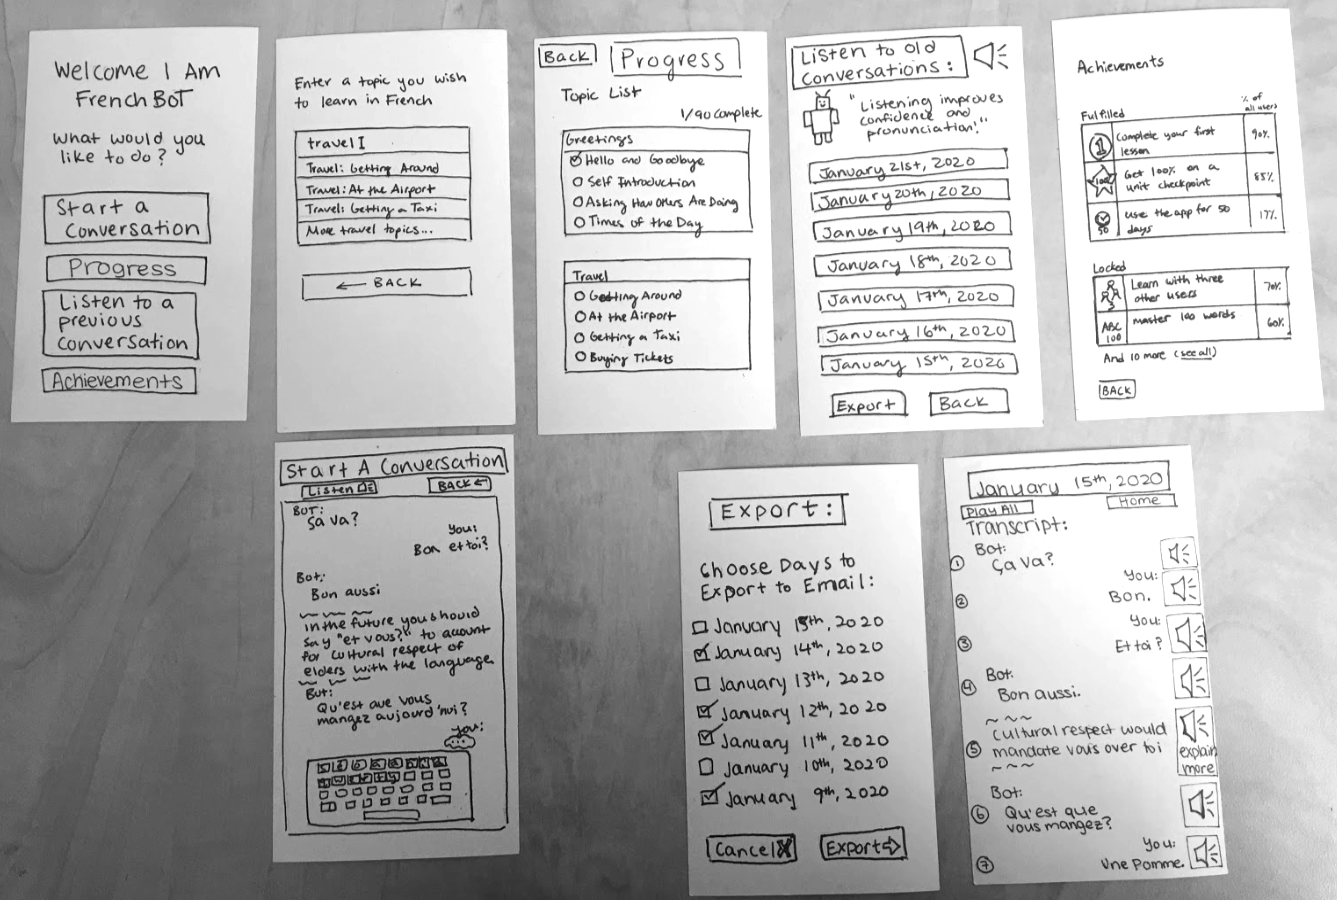 Welcome I Am
FrenchBot
What would you
like to do?
Start a
Conversation
Progress
Listen to a
previous
conversation
Achievements
Enter a topic you wish
to learn in French
travel I
Travel: Getting Around
Travel: At the Airport
Travel: Getting a Taxi
More travel topics...
← BACK
Back
Progress
Topic List
1/90 complete
Greetings
Hello and Goodbye
Self Introduction
Asking How Others Are Doing
Times of the Day
Travel
Getting Around
At the Airport
Getting a Taxi
Buying Tickets
Listen to old
Conversations:
"Listening improves
confidence and
pronunciation!"
January 21st, 2020
January 20th, 2020
January 19th, 2020
January 18th, 2020
January 17th, 2020
January 16th, 2020
January 15th, 2020
Export
Back
Achievements
Fulfilled
% of
all users
1
Complete your first
lesson
90%
100
Get 100% on a
unit checkpoint
85%
50
Use the app for 50
days
17%
Locked
Learn with three
other users
70%
ABC
100
Master 100 words
60%
And 10 more (see all)
BACK
Start A Conversation
Listen
BACK ←
BOT:
Ça va?
You:
Bon et toi?
Bot:
Bon aussi
~ ~ ~
in the future you should
say "et vous?" to account
for cultural respect of
elders with the language
~ ~ ~
Bot:
Qu'est que vous
mangez aujourd'hui?
You:
...
Export:
Choose Days to
Export to Email:
January 15th, 2020
January 14th, 2020
January 13th, 2020
January 12th, 2020
January 11th, 2020
January 10th, 2020
January 9th, 2020
Cancel X
Export ⇨
January 15th, 2020
Play All
Home
Transcript:
Bot:
1 Ça va?
You:
2 Bon.
You:
3 Et toi?
Bot:
4 Bon aussi.
~ ~ ~
Cultural respect would
5 mandate vous over toi
~ ~ ~
explain
more
Bot:
6 Qu'est que
vous mangez?
You:
7 Une pomme.